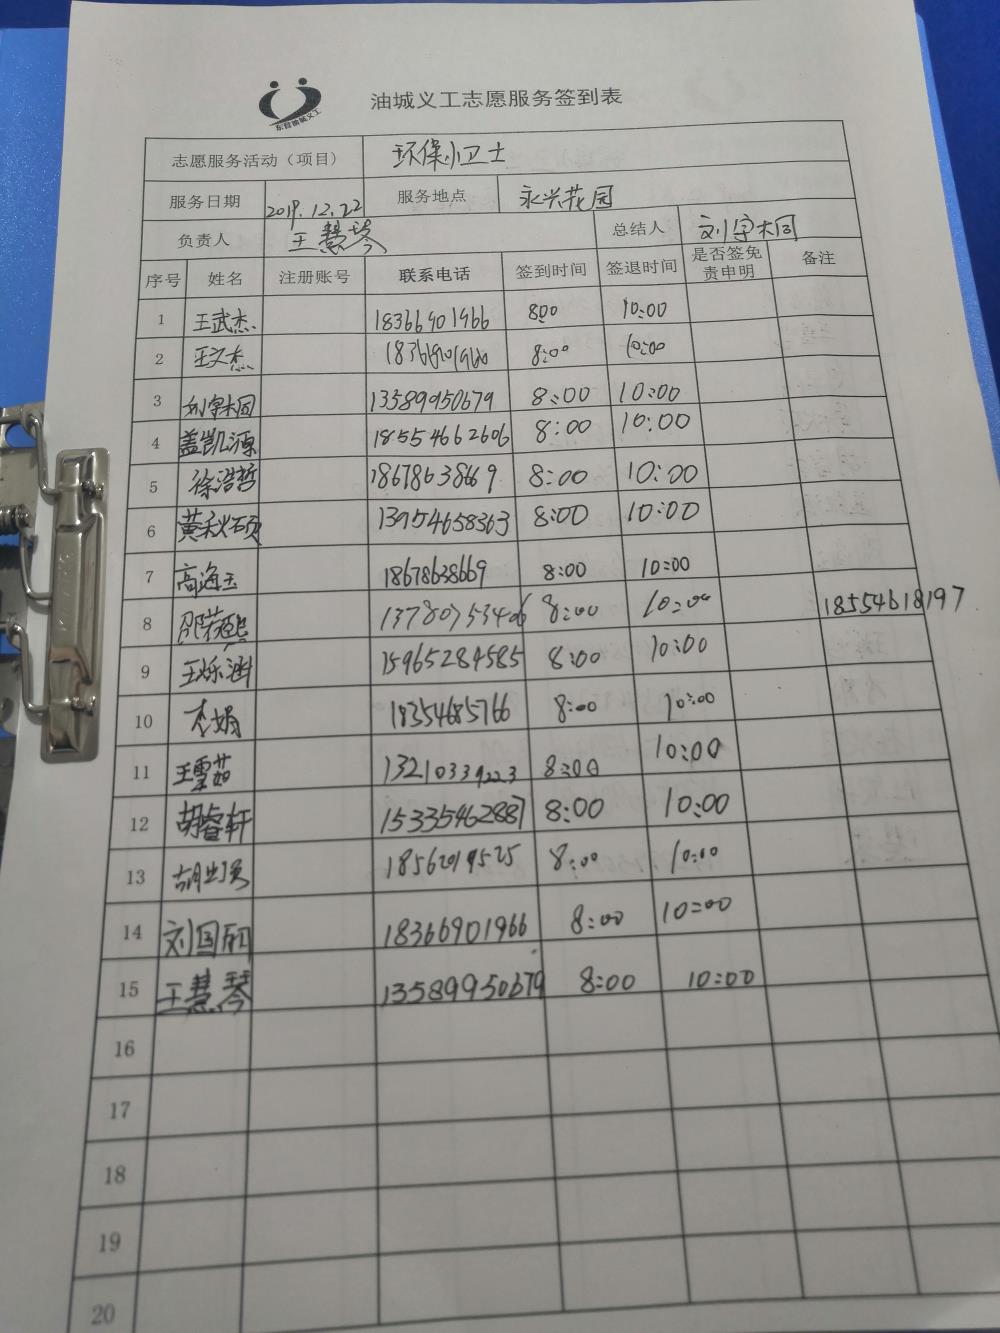 东营油城义工
油城义工志愿服务签到表
志愿服务活动（项目） 环保小卫士
服务日期 2019.12.22 服务地点 永兴花园
负责人 王慧琴 总结人 刘宇桐
序号 姓名 注册账号 联系电话 签到时间 签退时间 是否签免责申明 备注
1 王武杰 18366901966 8:00 10:00
2 王文杰 8:00 10:00
3 刘宇桐 13589950679 8:00 10:00
4 盖凯源 18554662606 8:00 10:00
5 徐浩哲 18678638669 8:00 10:00
6 黄秋硕 13954658363 8:00 10:00
7 高海玉 18678638669 8:00 10:00
8 8:00 10:00 18554618197
9 王烁涵 15965284585 8:00 10:00
10 李娟 18354685766 8:00 10:00
11 王雪茹 13210339223 8:00 10:00
12 胡睿轩 15335462887 8:00 10:00
13 8:00 10:00
14 刘国丽 18366901966 8:00 10:00
15 王慧琴 13589950679 8:00 10:00
16
17
18
19
20